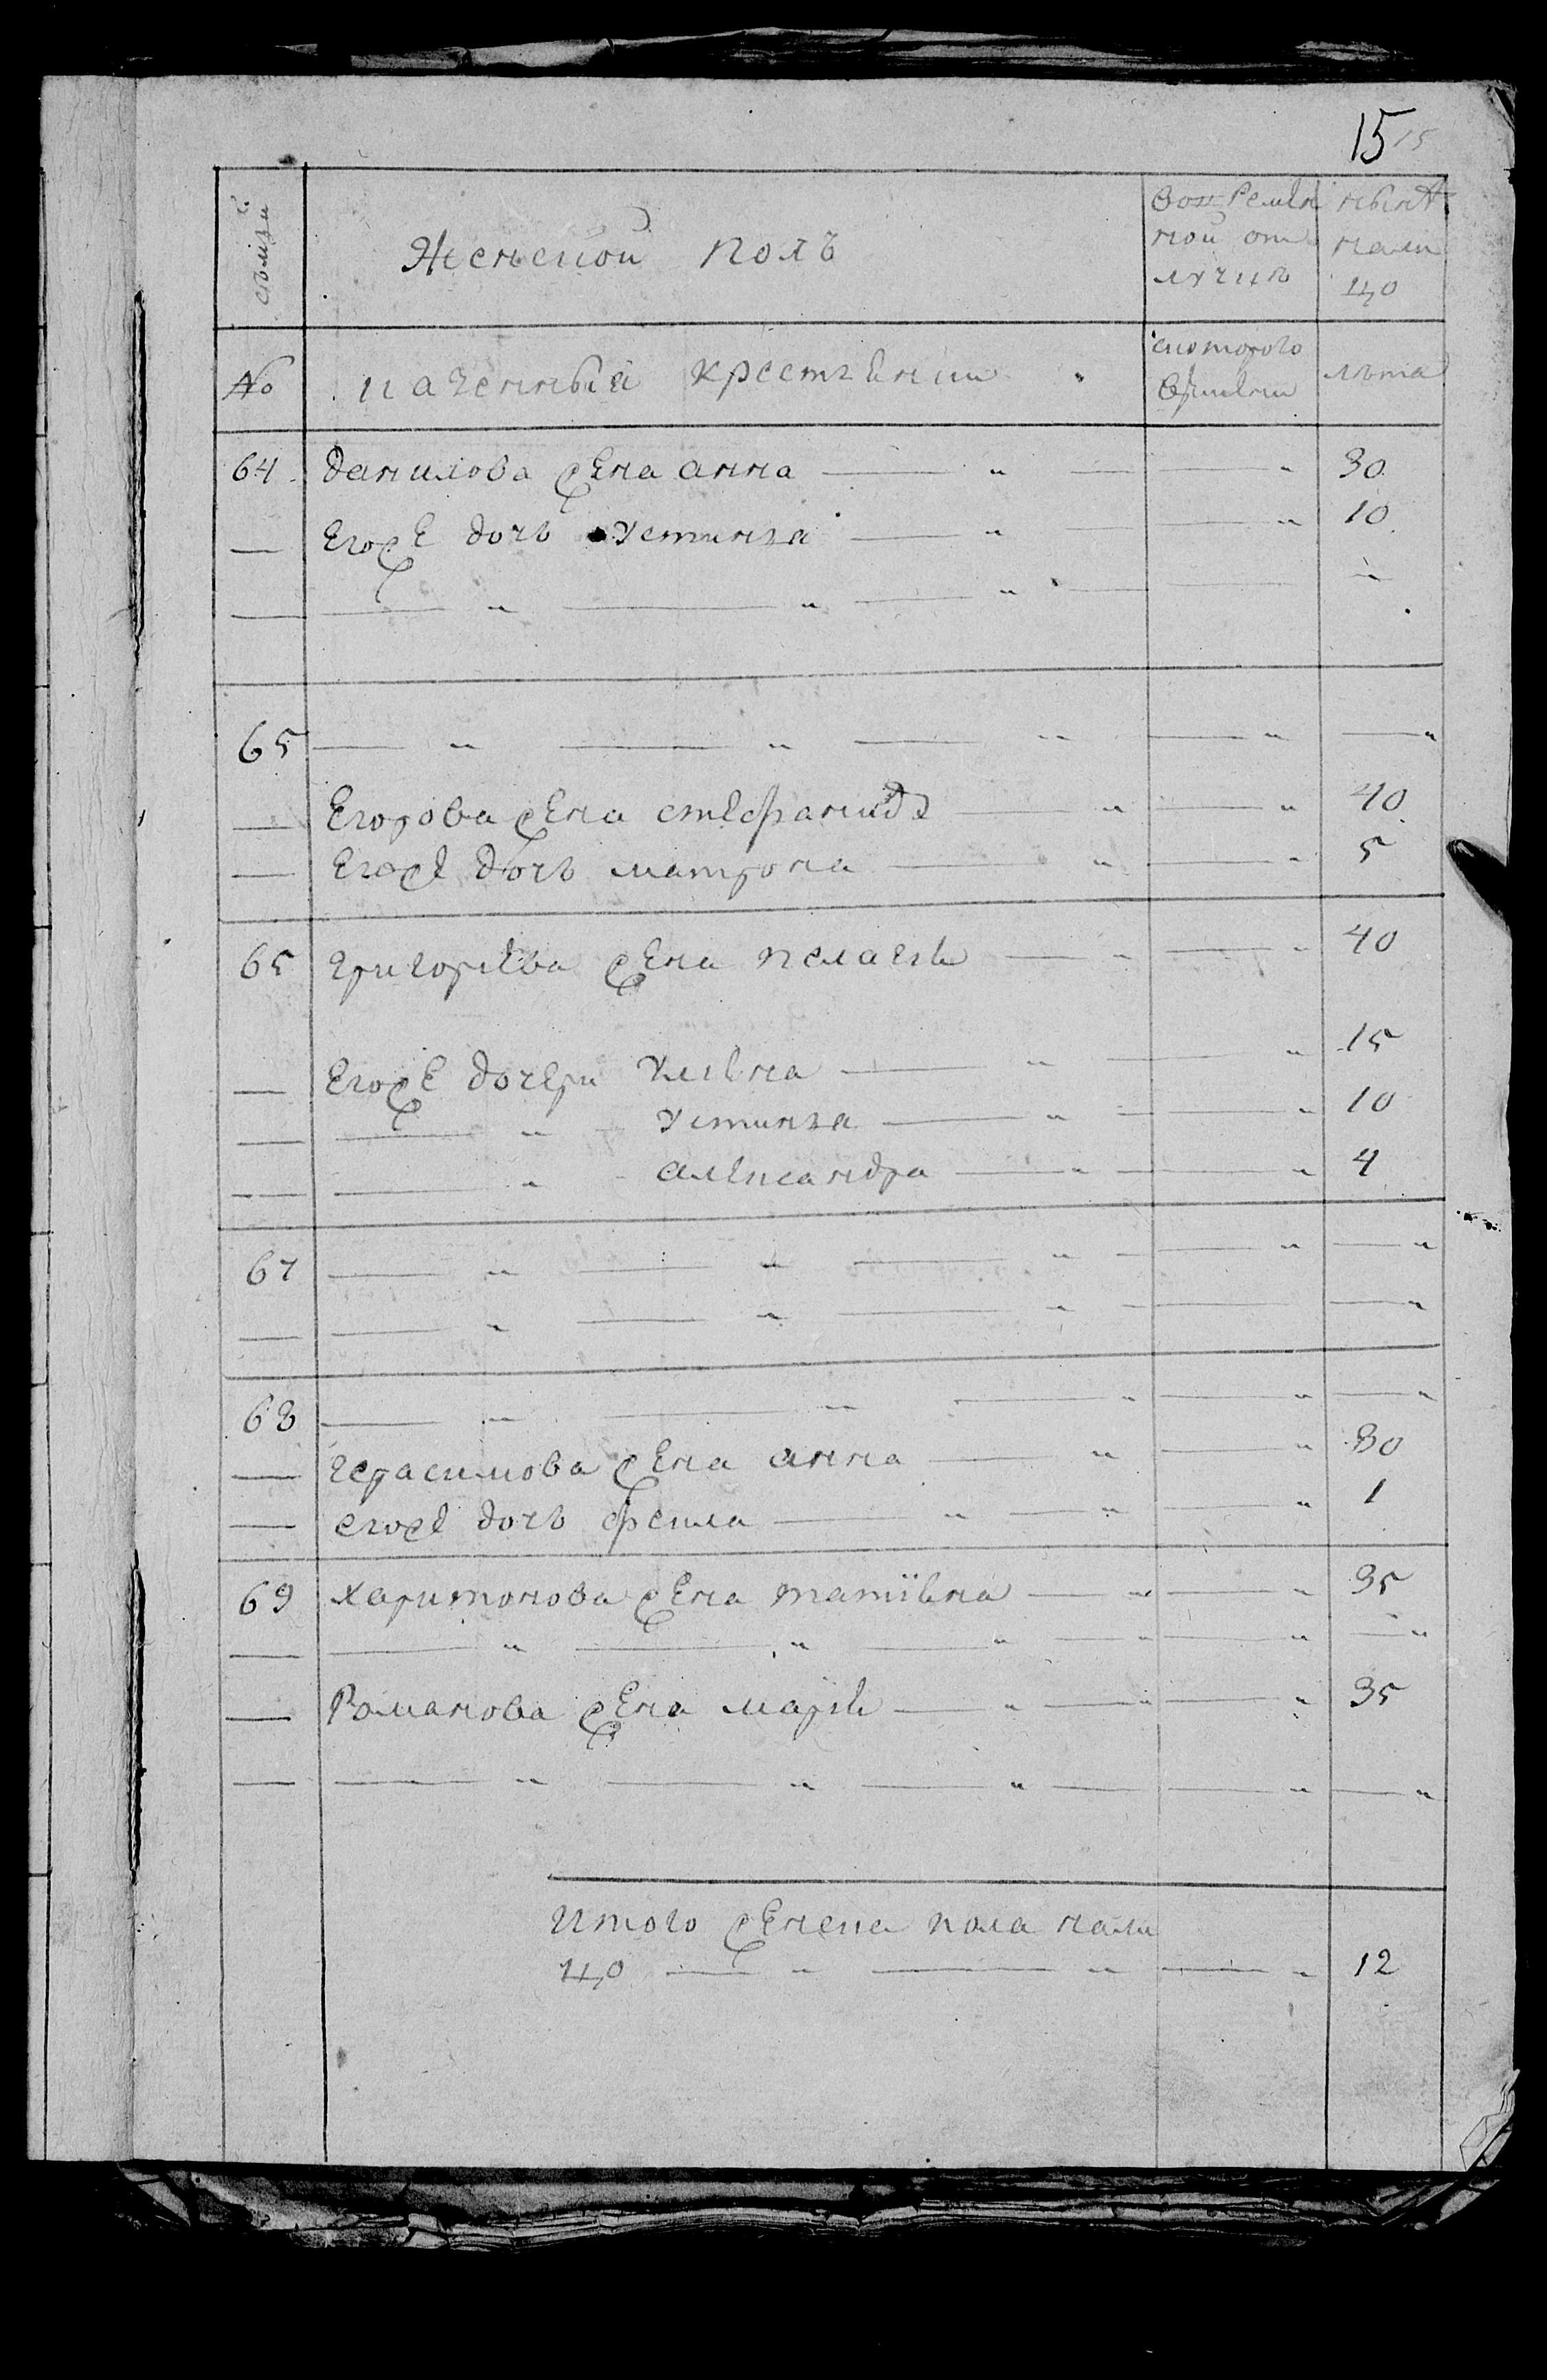 15 15
семьи
Женской полъ
Во временной отлучкѣ
нынѣ налицо
№
казенныя крестьянки
с котораго времяни
лѣта
64 Данилова жена анна 30
— Егоже дочь Устинья 10
65
— Егорова жена стефанида 40
— Егоже дочь матрона 5
65 Григорьева жена пелагея 40
— Егоже дочери Ульяна 15
— Устинья 10
— александра 4
67
68
— Герасимова жена анна 30
— егоже дочь фекла 1
69 Харитонова жена татіяна 35
— Романова жена марья 35
Итого женска пола нали
цо 12